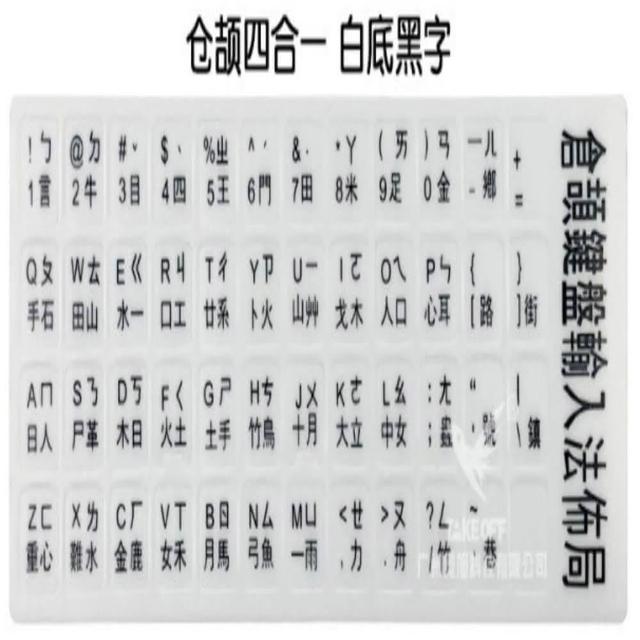 仓颉四合一 白底黑字
!ㄅ @ㄉ #ˇ $ˋ %ㄓ ^ˊ &˙ *ㄚ (ㄞ )ㄢ —ㄦ +
1言 2牛 3目 4四 5王 6門 7田 8米 9足 0金 -鄉 =
Qㄆ Wㄊ Eㄍ Rㄐ Tㄔ Yㄗ Uㄧ Iㄛ Oㄟ Pㄣ { }
手石 田山 水一 口工 廿糸 卜火 山艸 戈木 人口 心耳 [路 ]街
Aㄇ Sㄋ Dㄎ Fㄑ Gㄕ Hㄘ Jㄨ Kㄜ Lㄠ :ㄤ “ |
日人 尸革 木日 火土 土手 竹鳥 十月 大立 中女 ;蟲 '號 \鎮
Zㄈ Xㄌ Cㄏ Vㄒ Bㄖ Nㄙ Mㄩ <ㄝ >ㄡ ?ㄥ ~
重心 難水 金鹿 女禾 月馬 弓魚 一雨 ,力 .舟 /竹 巷
倉頡鍵盤輸入法佈局
TAKE OFF
有限公司